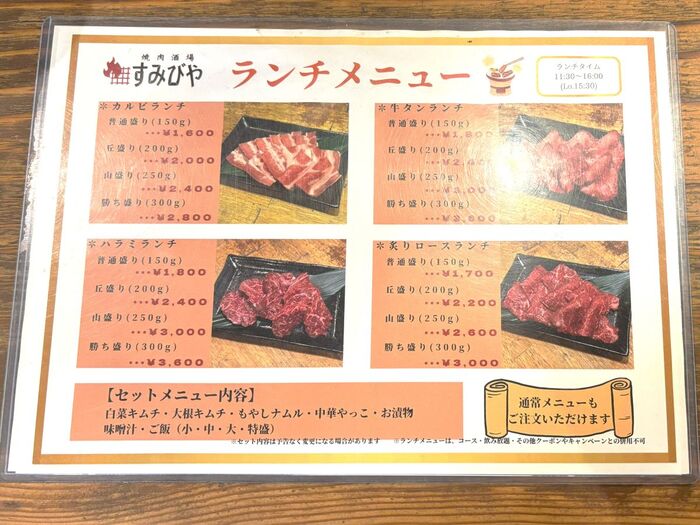 焼肉酒場
すみびや
ランチメニュー
ランチタイム
11:30～16:00
(Lo.15:30)
＊カルビランチ
普通盛り(150g)
･･･¥1,600
丘盛り(200g)
･･･¥2,000
山盛り(250g)
･･･¥2,400
勝ち盛り(300g)
･･･¥2,800
＊牛タンランチ
普通盛り(150g)
･･･¥1,800
丘盛り(200g)
･･･¥2,400
山盛り(250g)
･･･¥3,000
勝ち盛り(300g)
･･･¥3,600
＊ハラミランチ
普通盛り(150g)
･･･¥1,800
丘盛り(200g)
･･･¥2,400
山盛り(250g)
･･･¥3,000
勝ち盛り(300g)
･･･¥3,600
＊炙りロースランチ
普通盛り(150g)
･･･¥1,700
丘盛り(200g)
･･･¥2,200
山盛り(250g)
･･･¥2,600
勝ち盛り(300g)
･･･¥3,000
【セットメニュー内容】
白菜キムチ・大根キムチ・もやしナムル・中華やっこ・お漬物
味噌汁・ご飯（小・中・大・特盛）
通常メニューも
ご注文いただけます
※セット内容は予告なく変更になる場合があります
※ランチメニューは、コース・飲み放題・その他クーポンやキャンペーンとの併用不可